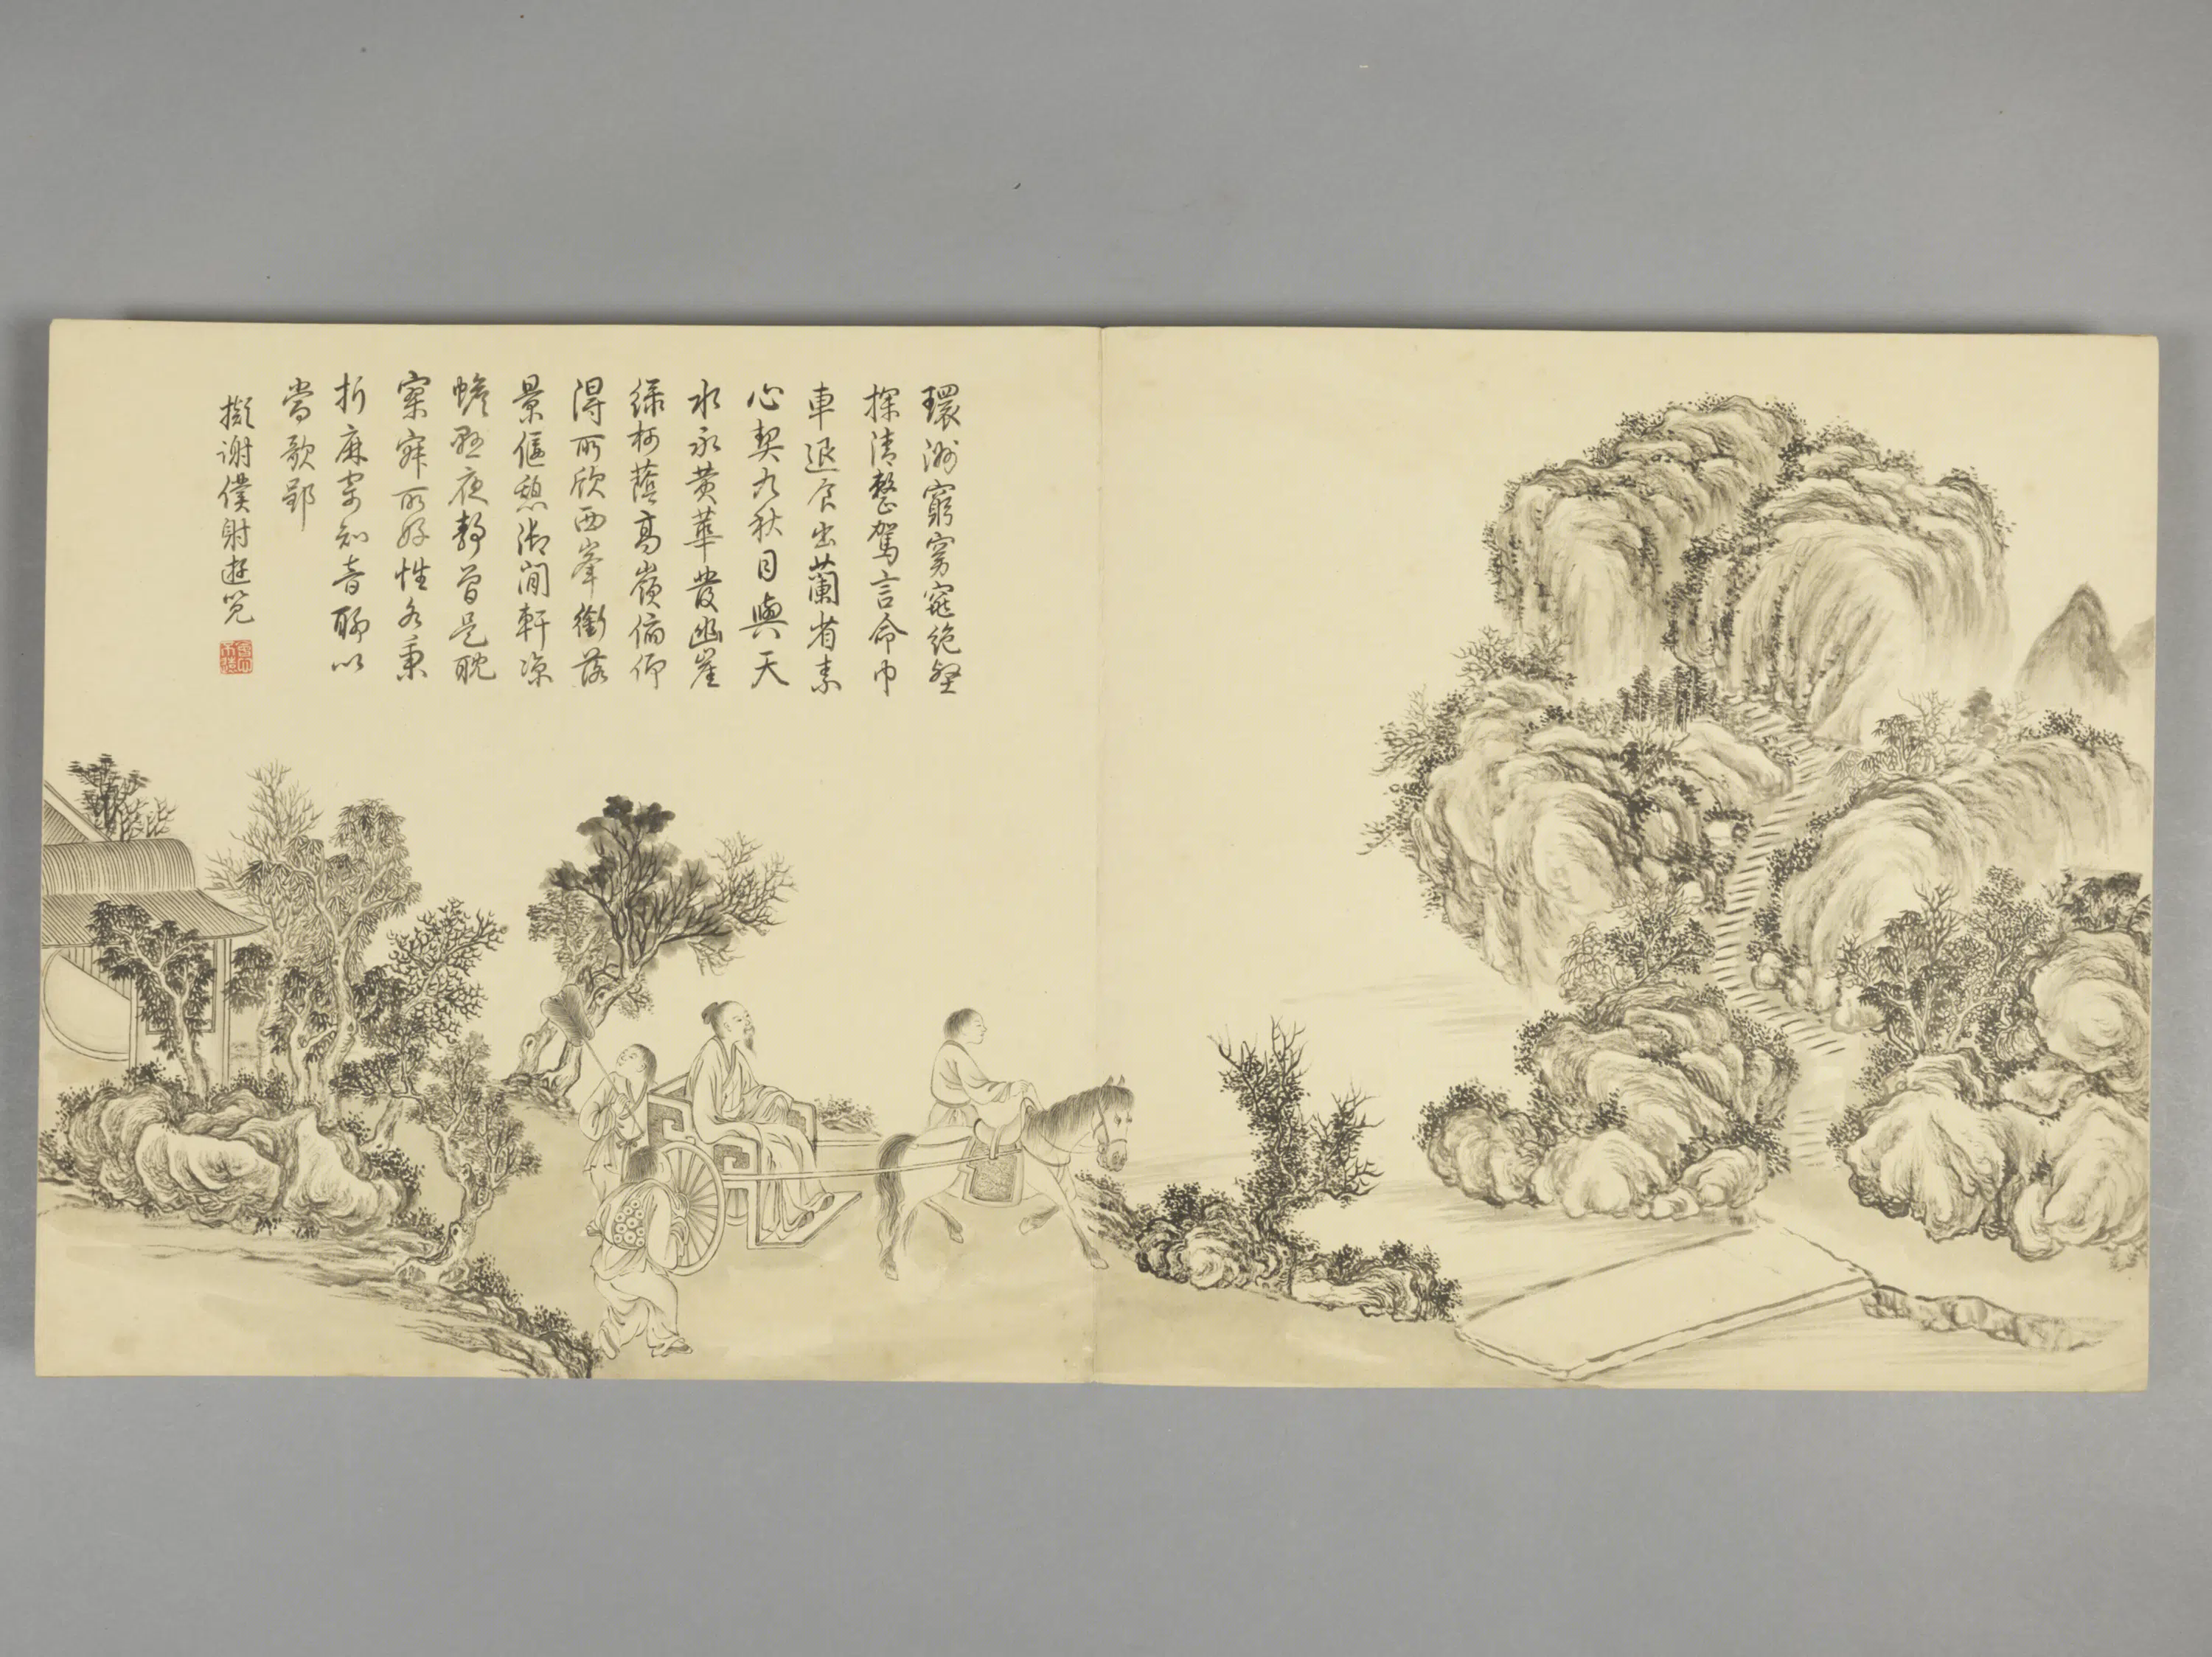 環洲窮窈窕絶壑
探清整駕言命巾
車退食出蘭省素
心契九秋目與天
水永黄華發幽崖
綠柯蔭高嶺俯仰
得所欣西峯銜落
景偃憩御閒軒涼
蟾照夜靜曾是耽
寥寂所好性各秉
折麻寄知音聊以
當歌郢
擬謝僕射遊覽